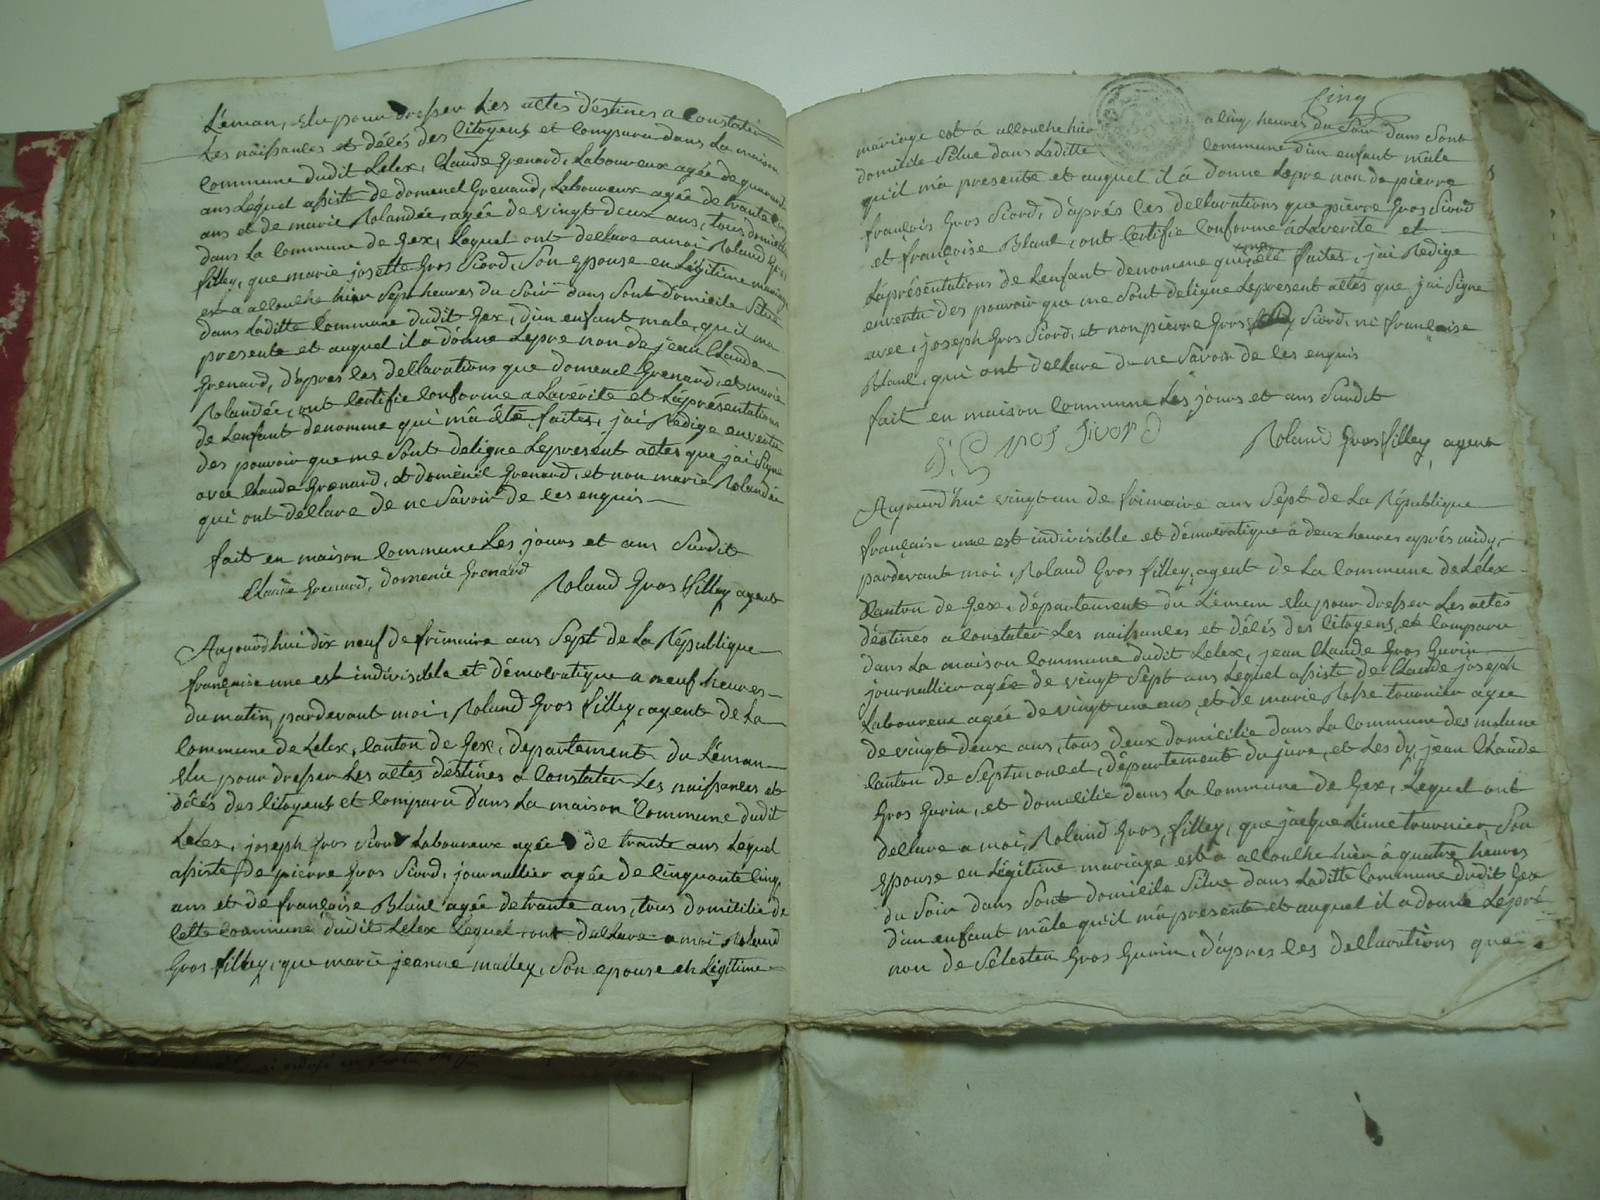 Léman, Elu pour dresser Les actes destines a Constater
Les naissances et délés des Citoyens et Comparu dans La maison
Commune dudit Lelex, Claude Grenard, Laboureux agée de quarante
ans Lequel assiste de domenel Grenard, Laboureux agée de trante
ans et de marie Rolandée, agée de vingt deux ans, tous domicilié
dans La Commune de Gex, Lequel ont dellare a moi Roland Gros
filley, que marie josette Gros Siord, Son epouse en Légitime mariage
est a alloulhe hier Sept heures du Soir dans Sont domicile Situe
dans Laditte Commune dudit Gex, d'un enfant male, qu'il ma
presente et auquel il a donne Lepre non de jean Claude
Grenard, d'apres les dellarations que domenel Grenard, et marie
Rolandée, ont Certifie Conforme a Laverite et Lapréséntations
de Lenfant denomme qui mà été faites, jai Redige enverte
des pouvoir que me Sont deligne Lepresent actes que j'ai Signe
avec Claude Grenard, et domènil Grenard, et non marie Rolandée
qui ont dellare de ne Savoir de les enquis
fait en maison Commune Les jours et ans Surdit
Claude Grenard, domenie Grenard Roland Gros filley agent
Aujourd'hui dix neuf de frimaire ans Sept de La République
française une est indivisible et démocratique a neuf heures
du matin, pardevant moi, Roland Gros filley, agent de La
Commune de Lelex, Canton de Gex, departement du Léman
Elu pour dresser Les actes destines a Constater Les naissances et
délés des Citoyens et Comparu dans La maison Commune dudit
Lelex, joseph Gros Siord Laboureux agée de trante ans Lequel
assiste de pierre Gros Siord, journallier agée de Cinquante Cinq
ans et de françoise Blanc agée de trante ans, tous domicilié de
Cette Commune dudit Lelex Lequel ont dellare a moi Roland
Gros filley, que marie jeanne malley, Son epouse en Légitime
Cinq
mariage est à alloulhe hier a Cinq heures du Soir dans Sont
domicile Situe dans Laditte Commune d'un enfant mâle
qu'il mà presente et auquel il à donne Lepre non de pierre
françois Gros Siord, d'aprés les dellarations que pierre Gros Siord
et françoise Blanc, ont Certifie Conforme à Laverite et
Lapréséntations de Lenfant denomme qui faites, j'ai Redige
enverte des pouvoir que me Sont deligne Lepresent actes que j'ai Signe
avec, joseph Gros Siord, et non pierre Gros Siord, ni françoise
Blanc, qui ont dellare de ne Savoir de les enquis
fait en maison Commune Les jours et ans Surdit
j. Gros Siord Roland Gros filley agent
Aujourd'hui vingt un de frimaire ans Sept de La République
française une est indivisible et démocratique à deux heures aprés midy,
pardevant moi, Roland Gros filley, agent de La Commune de Lélex
Canton de Gex, département du Léman Elu pour dresser Les actes
déstinés a Constater Les naissances et délés des Citoyens, et Comparu
dans La maison Commune dudit Lelex, jean Claude Gros Gurin
journallier agée de vingt Sept ans Lequel assiste de Claude joseph
Laboureux agée de vingt une ans, et de marie Rosse tournier agee
de vingt deux ans, tous deux domicilie dans La Commune des molune
Canton de Septmoncel, département du jura, et Les dy jean Claude
Gros Gurin, et domicilié dans La Commune de Gex, Lequel ont
dellare a moi, Roland Gros, filley, que jacque Linne tournier Son
Epouse en Légitime mariage est à alloulhe hier à quatre heures
du Soir dans Sont domicile Situe dans Laditte Commune dudit Gex
d'un enfant mâle qu'il mà presente et auquel il a donne Lepré
non de Selesten Gros Gurin, d'apres les dellarations que